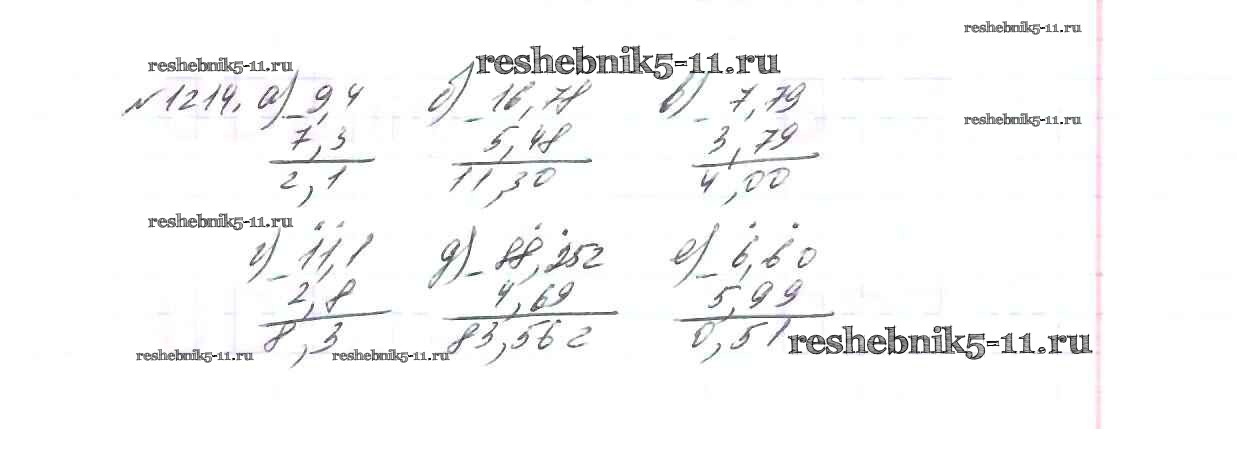 reshebnik5-11.ru
reshebnik5-11.ru
reshebnik5-11.ru
№1214. а) 9,4 б) 16,78 в) 7,79
reshebnik5-11.ru
- 7,3 - 5,48 - 3,79
2,1 11,30 4,00
reshebnik5-11.ru
г) 11,1 д) 88,252 е) 6,60
- 2,8 - 4,69 - 5,99
8,3 83,562 0,51
reshebnik5-11.ru
reshebnik5-11.ru reshebnik5-11.ru